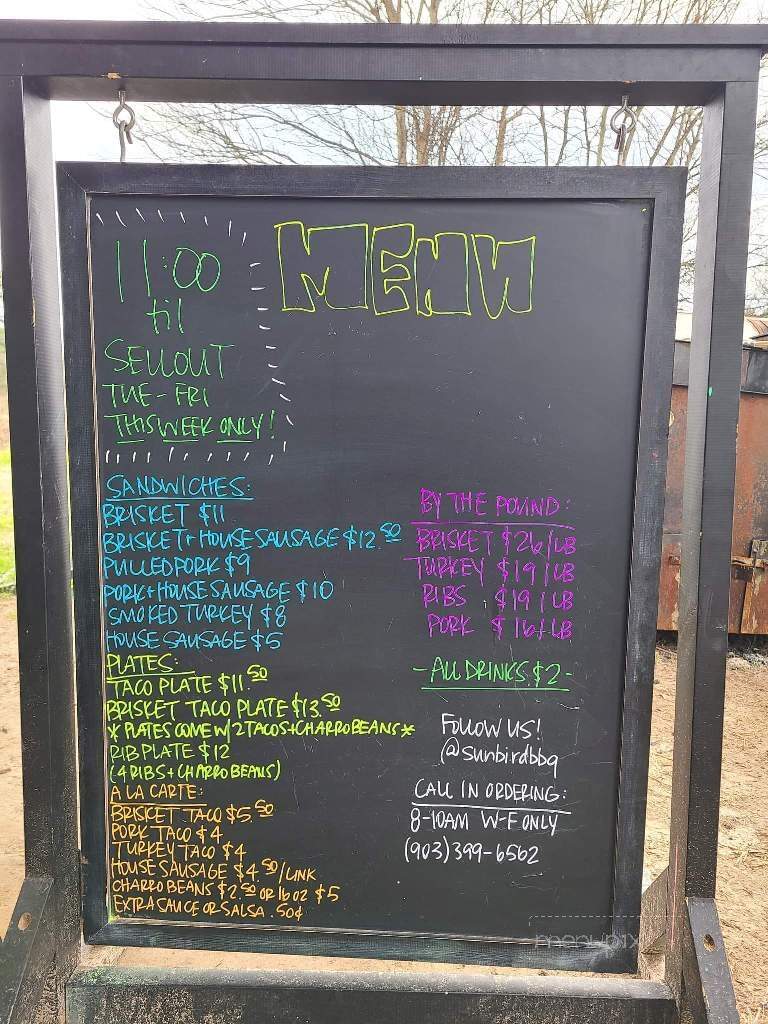 MENU
11:00
til
SELLOUT
TUE - FRI
THIS WEEK ONLY!
SANDWICHES:
BRISKET $11
BRISKET + HOUSE SAUSAGE $12.50
PULLED PORK $9
PORK + HOUSE SAUSAGE $10
SMOKED TURKEY $8
HOUSE SAUSAGE $5
PLATES:
TACO PLATE $11.50
BRISKET TACO PLATE $13.50
* PLATES COME W/ 2 TACOS + CHARRO BEANS *
RIB PLATE $12
(4 RIBS + CHARRO BEANS)
A LA CARTE:
BRISKET TACO $5.50
PORK TACO $4
TURKEY TACO $4
HOUSE SAUSAGE $4.50/LINK
CHARRO BEANS $2.50 OR 16 OZ $5
EXTRA SAUCE OR SALSA .50¢
BY THE POUND:
BRISKET $26/LB
TURKEY $19/LB
RIBS $19/LB
PORK $16/LB
- ALL DRINKS $2 -
FOLLOW US!
@sunbirdbbq
CALL IN ORDERING:
8-10AM W-F ONLY
(903)399-6562
menupix